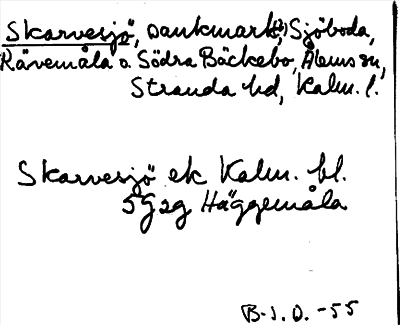 Skarvesjö, sankmark, Sjöboda,
Rävemåla o. Södra Bäckebo, Ålems sn,
Stranda hd, Kalm. l.
Skarvesjö ek Kalm. bl.
5G2g Häggemåla
B.J.O. -55